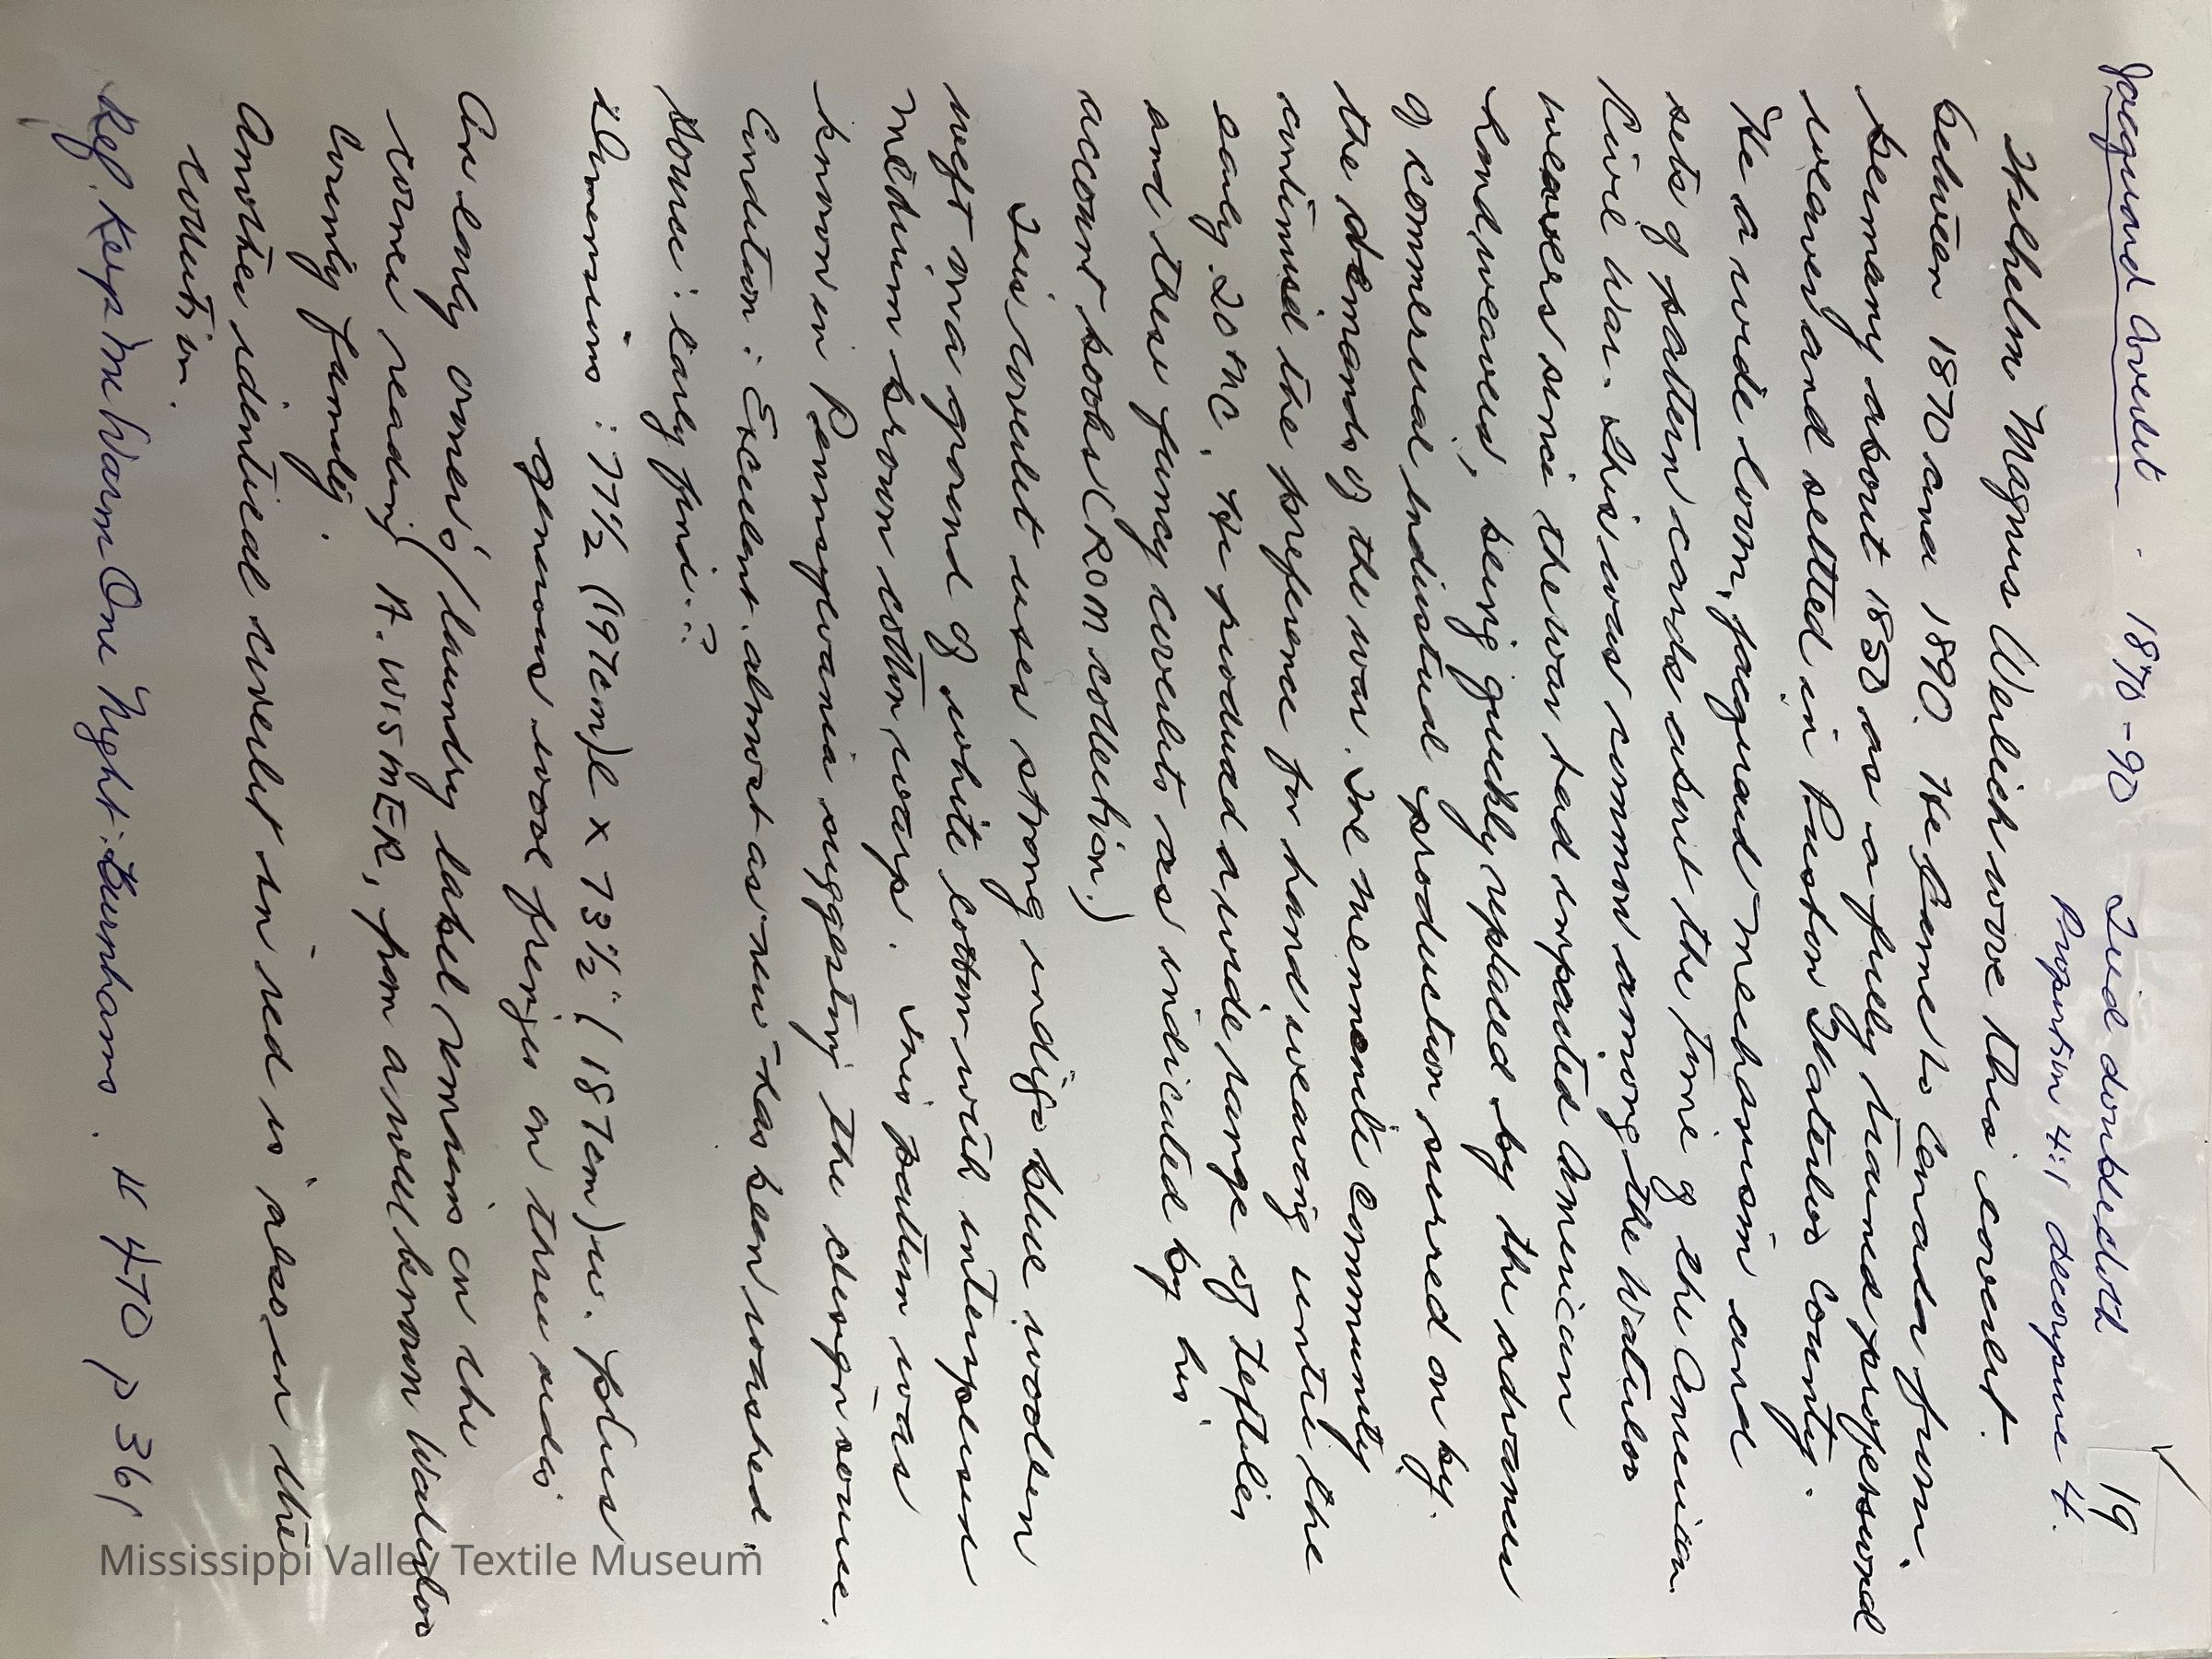 Jacquard Coverlet - 1870-90 Tied doublecloth 19
Proportion 4:1 decoupure 4.
Wilhelm Magnus Werlich wove this coverlet
between 1870 and 1890. He came to Canada from
Germany about 1850 as a fully trained professional
weaver and settled in Preston Waterloo County.
He a wide loom, jacquard mechanism and
sets of pattern cards about the time of the American
Civil War. This was common among the Waterloo
weavers since the war had impacted American
handweavers, being quickly replaced by the advances
of commercial industrial production spurred on by
the demands of the war. The Mennonite Community
continued the preference for hand weaving until the
early 20thC. He produced a wide range of textiles
and these fancy coverlets as indicated by his
account books (ROM collection.)
This coverlet uses strong indigo blue woolen
weft on a ground of white cotton with interspersed
medium brown cotton warp. This pattern was
known in Pennsylvania suggesting the design source.
Condition: Excellent almost as new - has been washed.
Source: Early finds.??
Dimensions: 77½ (197cm)l x 73½" (187cm)w. plus
generous wool fringes on three sides
An early owner's/laundry label remains on the
corner reading A. WISMER, from a well known Waterloo
County family.
Another identical coverlet in red is also in the
collection.
Ref. Keep Me Warm One Night: Burnhams. # 470 p 361
Mississippi Valley Textile Museum